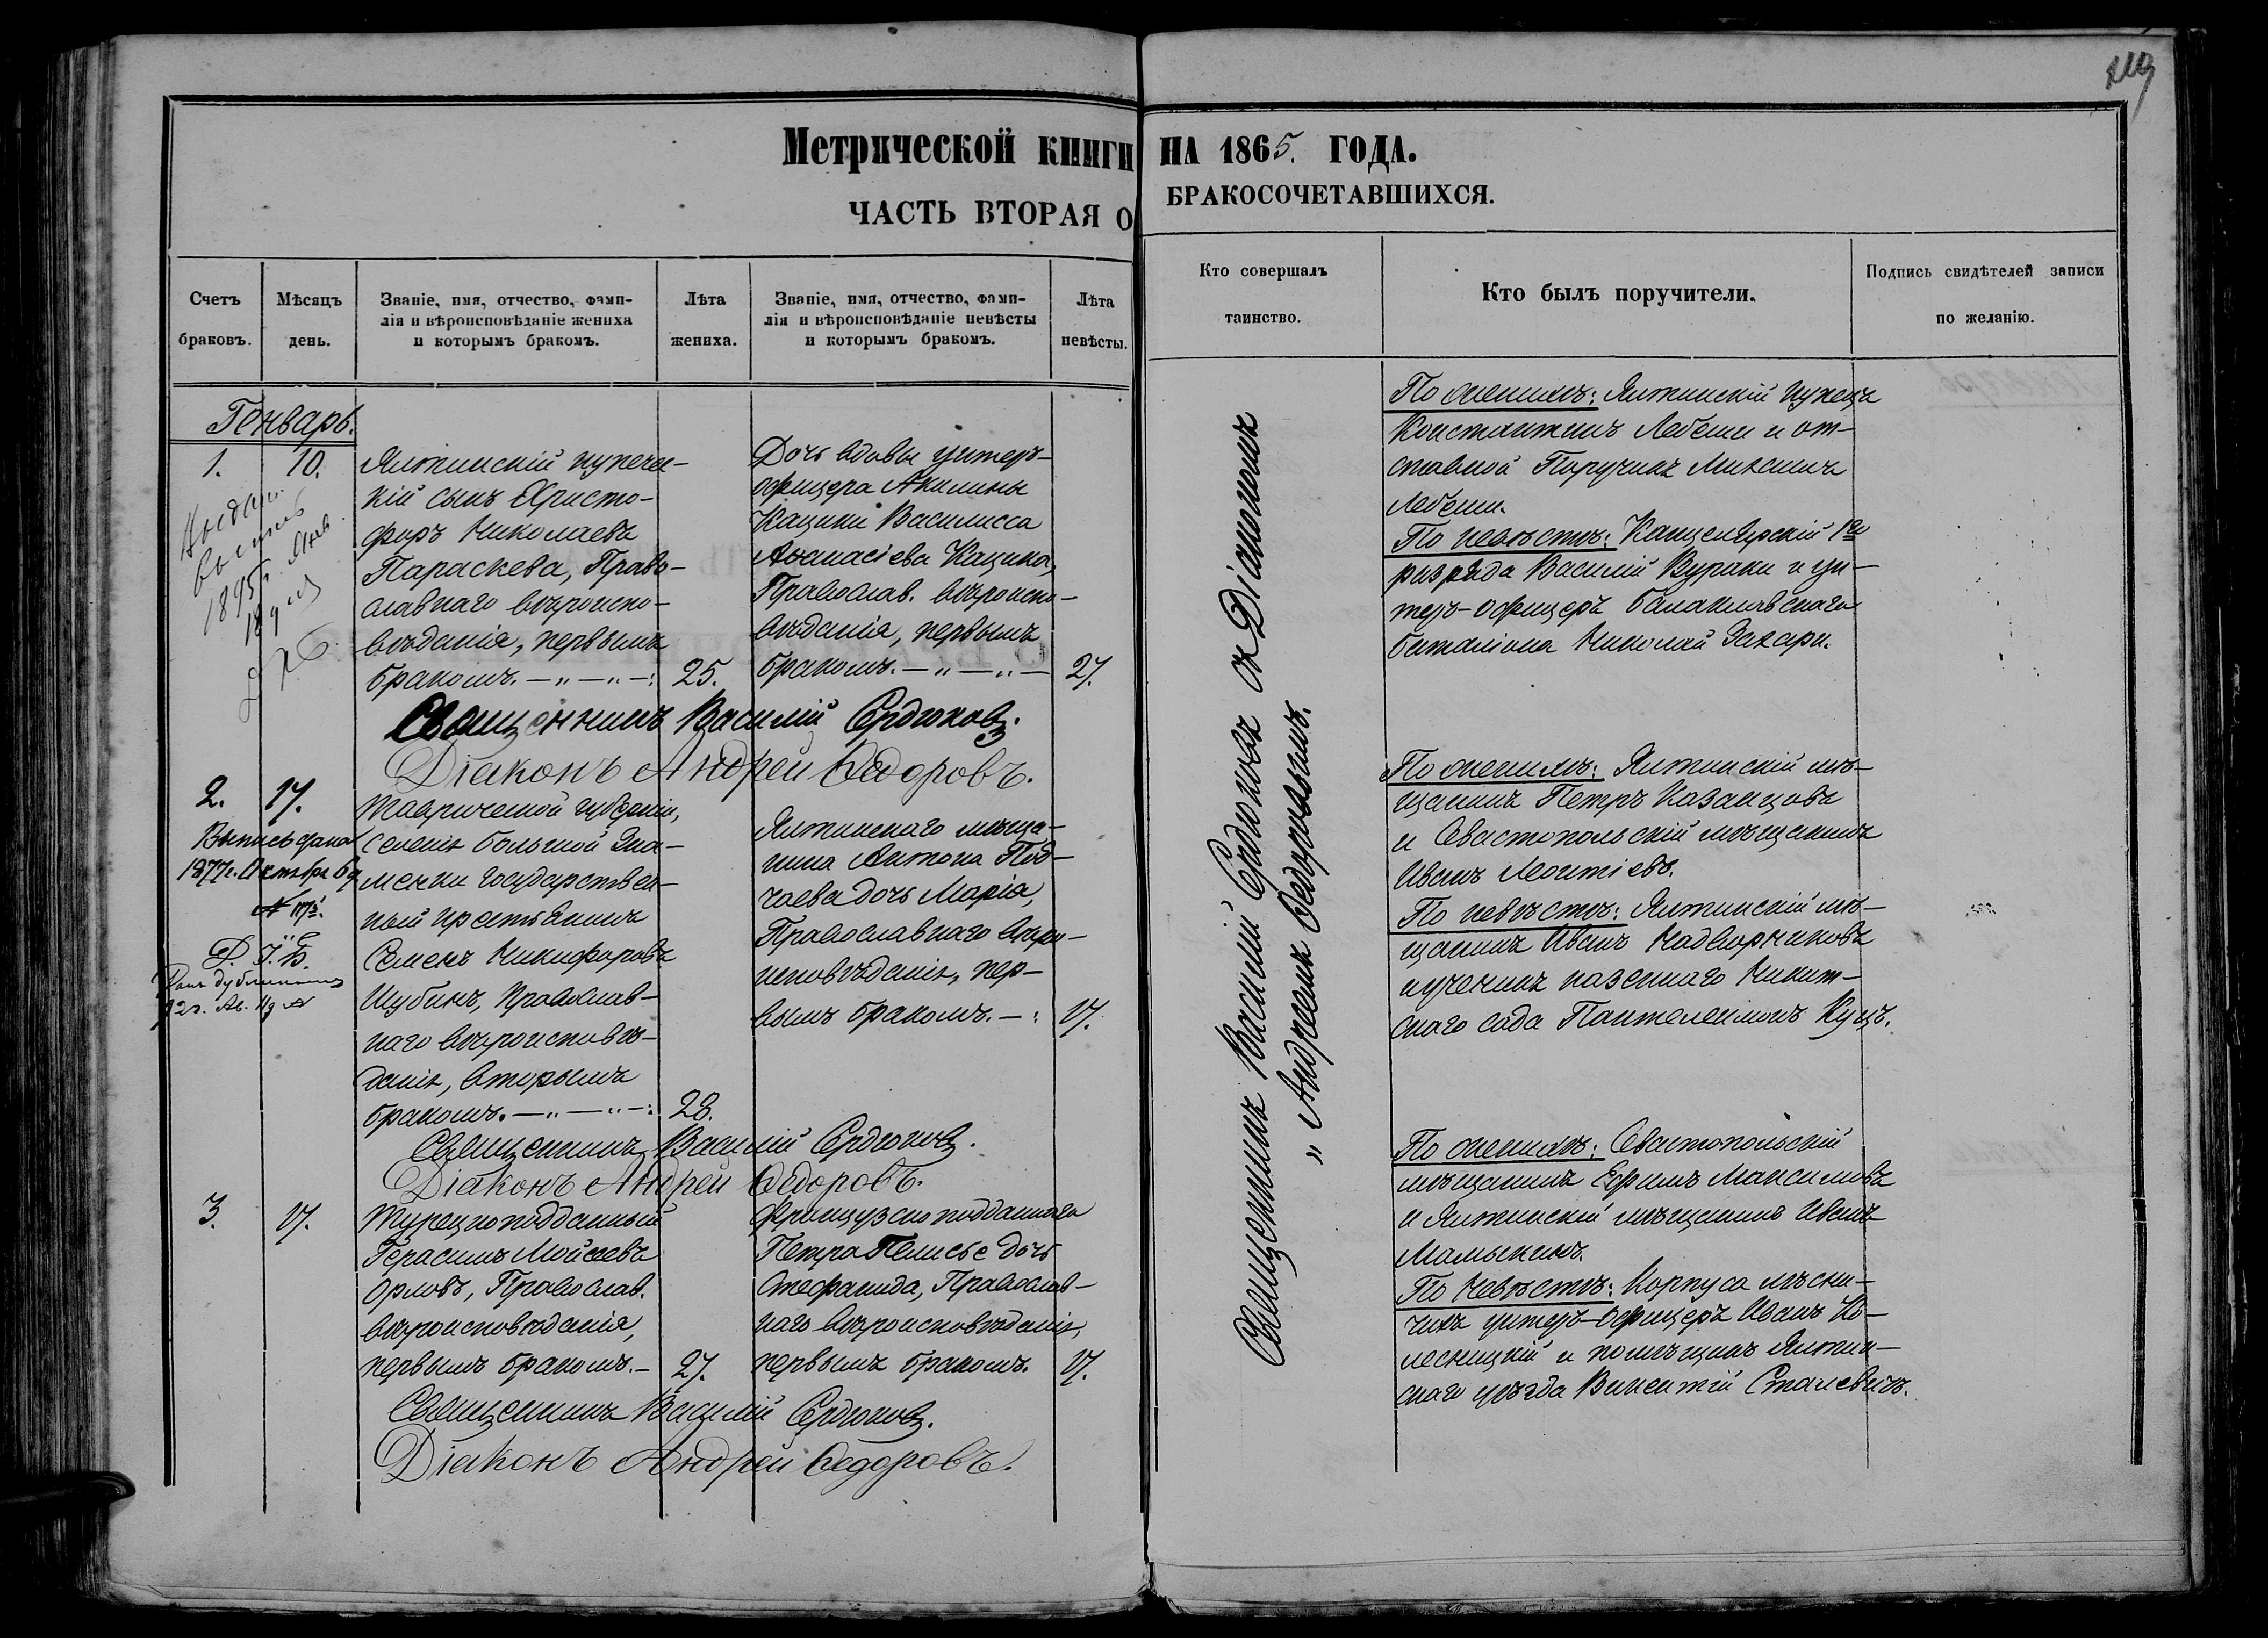 119
Метрической книги на 1865. года.
ЧАСТЬ ВТОРАЯ О БРАКОСОЧЕТАВШИХСЯ.
Счетъ браковъ.
Мѣсяцъ день.
Званіе, имя, отчество, фами-
лія и вѣроисповѣданіе жениха
и которымъ бракомъ.
Лѣта жениха.
Званіе, имя, отчество, фами-
лія и вѣроисповѣданіе невѣсты
и которымъ бракомъ.
Лѣта невѣсты.
Кто совершалъ таинство.
Кто былъ поручители.
Подпись свидѣтелей записи по желанію.
Генварь.
1. 10.
Ялтинскій купече-
кій сынъ Христо-
форъ Николаевъ
Параскева, Право-
славнаго вѣроиспо-
вѣданія, первымъ
бракомъ. — „ — „ —: 25.
Дочь вдовы унтеръ-
офицера Акилины
Кацики Василисса
Аѳанасіева Кацика,
Православ. вѣроиспо-
вѣданія, первымъ
бракомъ. — „ — „ — 27.
1895 г. Янв.
Священникъ Василій Сердюковъ.
Діаконъ Андрей Ѳедоровъ.
По женихѣ: Ялтинскій купецъ
Константинъ Лебеши и от-
ставной Поручикъ Михаилъ
Лебеши.
По невѣстѣ: Канцелярскій 1го
разряда Василій Вураки и ун-
теръ-офицеръ Балаклавскаго
баталіона Николай Захари.
2. 17.
Выпись дана
1877 г. Октября 6 д
Данъ дубликатъ
Таврической губерніи,
селенія Большой Зна-
менки государствен-
ный крестьянинъ
Семенъ Никифоровъ
Шубинъ, Православ-
наго вѣроисповѣ-
данія, вторымъ
бракомъ. — „ — „ —: 28.
Ялтинскаго мѣща-
нина Антона Под-
чаева дочь Марія,
Православнаго вѣро-
исповѣданія, пер-
вымъ бракомъ. —: 17.
Священникъ Василій Сердюковъ.
Діаконъ Андрей Ѳедоровъ.
По женихѣ: Ялтинскій мѣ-
щанинъ Петръ Казанцовъ
и Севастопольскій мѣщанинъ
Иванъ Леонтіевъ.
По невѣстѣ: Ялтинскій мѣ-
щанинъ Иванъ Надворниковъ
и ученикъ казеннаго Никит-
скаго сада Пантелеимонъ Куцъ.
3. 17.
Турецкоподданный
Герасимъ Мойсеевъ
Орловъ, Православ.
вѣроисповѣданія,
первымъ бракомъ. — 27.
Французскоподданнаго
Петра Пелисье дочь
Стефанида, Православ-
наго вѣроисповѣданія,
первымъ бракомъ. 17.
Священникъ Василій Сердюковъ.
Діаконъ Андрей Ѳедоровъ.
По женихѣ: Севастопольскій
мѣщанинъ Ефимъ Максимовъ
и Ялтинскій мѣщанинъ Иванъ
Мамыкинъ.
По Невѣстѣ: Корпуса лѣсни-
чихъ унтеръ-офицеръ Иванъ Ко-
лесницкій и помѣщикъ Ялтин-
скаго уѣзда Викентій Станевичъ.
Священникъ Василій Сердюковъ съ Діакономъ
„ Андреемъ Ѳедоровымъ.